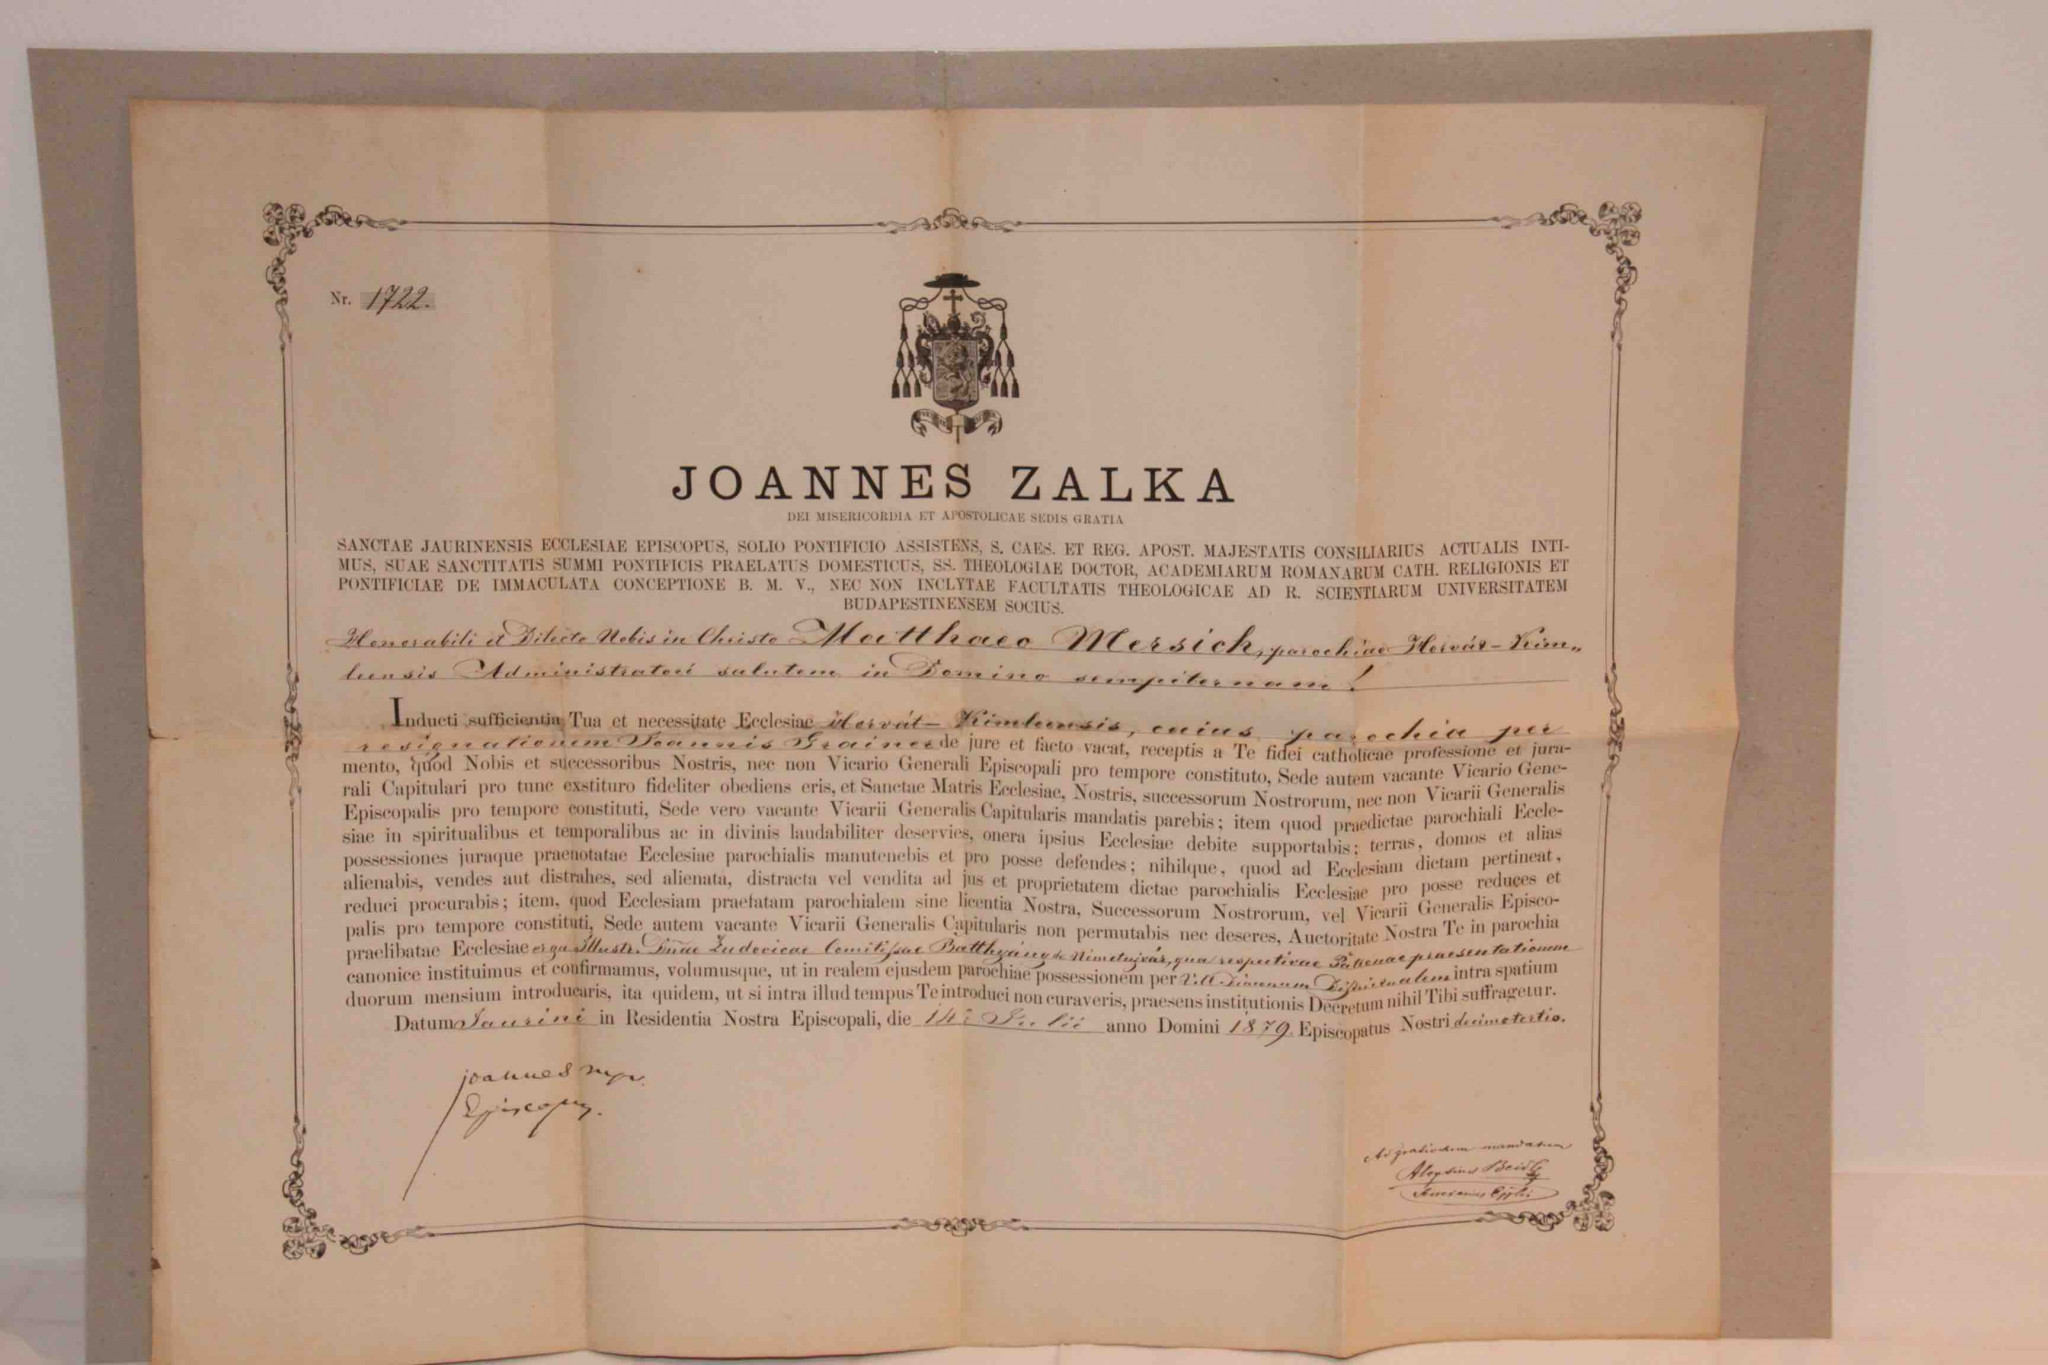 Nr. 1722.
JOANNES ZALKA
DEI MISERICORDIA ET APOSTOLICAE SEDIS GRATIA
SANCTAE JAURINENSIS ECCLESIAE EPISCOPUS, SOLIO PONTIFICIO ASSISTENS, S. CAES. ET REG. APOST. MAJESTATIS CONSILIARIUS ACTUALIS INTI-
MUS, SUAE SANCTITATIS SUMMI PONTIFICIS PRAELATUS DOMESTICUS, SS. THEOLOGIAE DOCTOR, ACADEMIARUM ROMANARUM CATH. RELIGIONIS ET
PONTIFICIAE DE IMMACULATA CONCEPTIONE B. M. V., NEC NON INCLYTAE FACULTATIS THEOLOGICAE AD R. SCIENTIARUM UNIVERSITATEM
BUDAPESTINENSEM SOCIUS.
Honorabili et Dilecto Nobis in Christo Matthaeo Mersich, parochiae Horvát-Kim„
lensis Administratori salutem in Domino sempiternam!
Inducti sufficientia Tua et necessitate Ecclesiae Horvát-Kimlensis, cuius parochia per
resignationem Joannis Grainer de jure et facto vacat, receptis a Te fidei catholicae professione et jura-
mento, quod Nobis et successoribus Nostris, nec non Vicario Generali Episcopali pro tempore constituto, Sede autem vacante Vicario Gene-
rali Capitulari pro tunc exstituro fideliter obediens eris, et Sanctae Matris Ecclesiae, Nostris, successorum Nostrorum, nec non Vicarii Generalis
Episcopalis pro tempore constituti, Sede vero vacante Vicarii Generalis Capitularis mandatis parebis; item quod praedictae parochiali Eccle-
siae in spiritualibus et temporalibus ac in divinis laudabiliter deservies, onera ipsius Ecclesiae debite supportabis; terras, domos et alias
possessiones juraque praenotatae Ecclesiae parochialis manutenebis et pro posse defendes; nihilque, quod ad Ecclesiam dictam pertineat,
alienabis, vendes aut distrahes, sed alienata, distracta vel vendita ad jus et proprietatem dictae parochialis Ecclesiae pro posse reduces et
reduci procurabis; item, quod Ecclesiam praefatam parochialem sine licentia Nostra, Successorum Nostrorum, vel Vicarii Generalis Episco-
palis pro tempore constituti, Sede autem vacante Vicarii Generalis Capitularis non permutabis nec deseres, Auctoritate Nostra Te in parochia
praelibatae Ecclesiae erga Illustr. Dnae Ludovicae Comitissae Batthyány de Nimetujvár, qua respectivae Patronae praesentationem
canonice instituimus et confirmamus, volumusque, ut in realem ejusdem parochiae possessionem per V. A. Diaconum Districtualem intra spatium
duorum mensium introducaris, ita quidem, ut si intra illud tempus Te introduci non curaveris, praesens institutionis Decretum nihil Tibi suffragetur.
Datum Jaurini in Residentia Nostra Episcopali, die 14a Julii anno Domini 1879. Episcopatus Nostri decimotertio.
Joannes mpr.
Episcopus.
Ad gratiosum mandatum
Aloysius